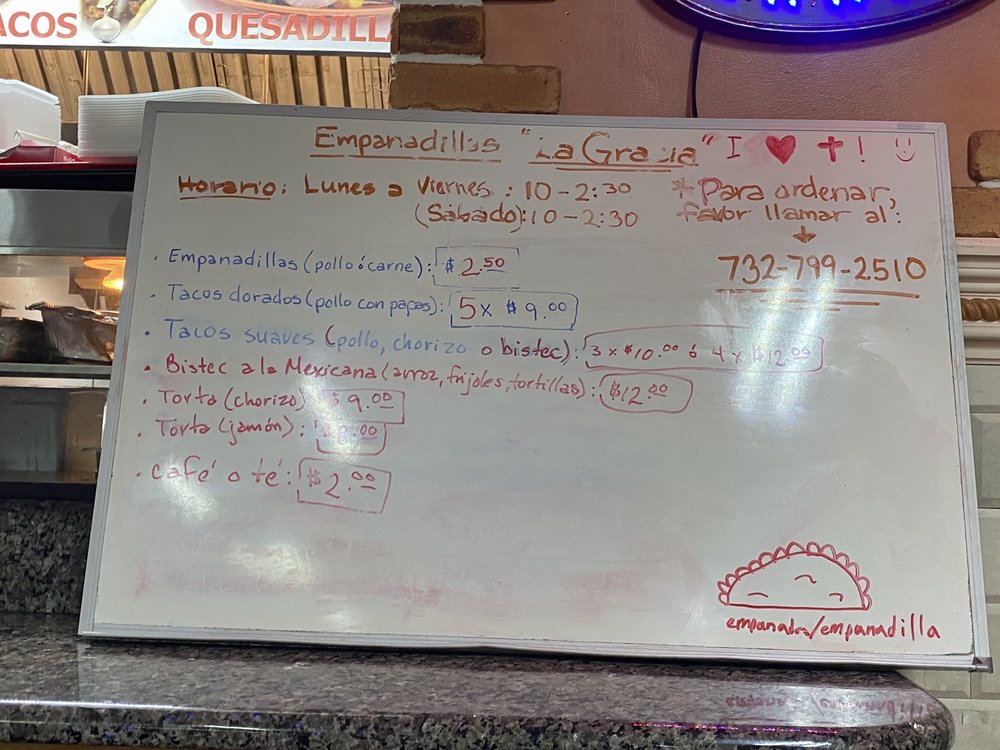 ACOS QUESADILLA
Empanadillas "La Gracia" I ❤ ✝!
Horario: Lunes a Viernes: 10-2:30
(Sábado): 10-2:30
* Para ordenar,
favor llamar al:
732-799-2510
• Empanadillas (pollo ó carne): $2.50
• Tacos dorados (pollo con papas): 5 x $9.00
• Tacos suaves (pollo, chorizo o bistec): 3 x $10.00 ó 4 x $12.00
• Bistec a la Mexicana (arroz, frijoles, tortillas): $12.00
• Torta (chorizo) $9.00
• Torta (jamón):
• café o té: $2.00
empanada/empanadilla